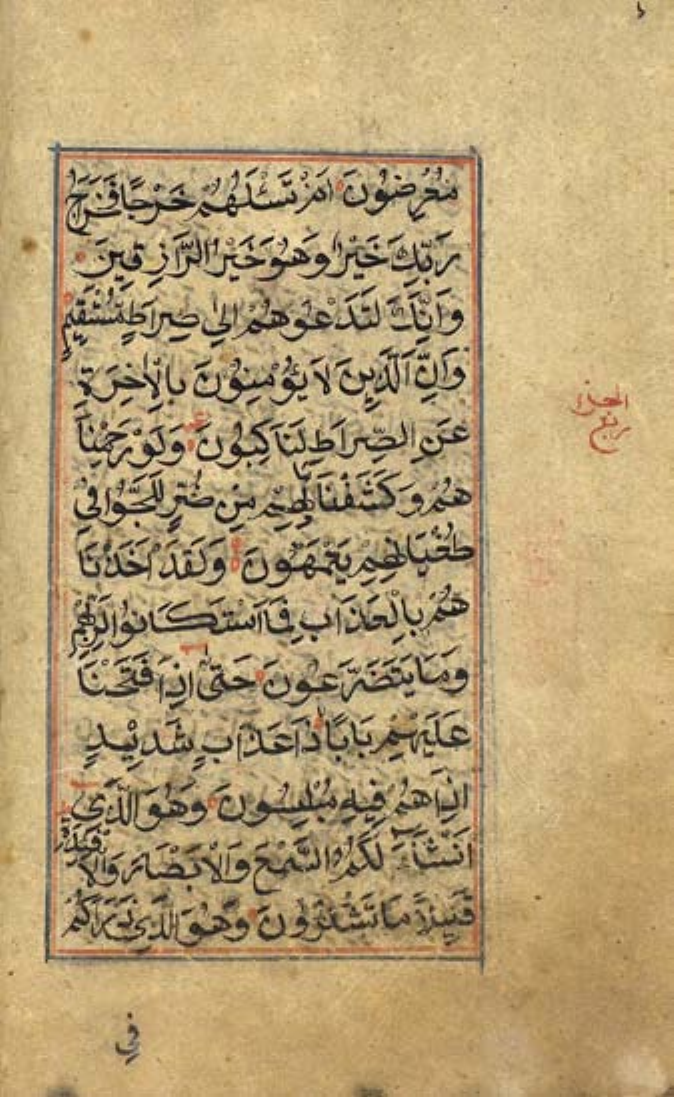 مُعْرِضُونَ اَمْ تَسْـَٔلُهُمْ خَرْجًا فَخَرَاجُ
رَبِّكَ خَيْرٌ وَهُوَ خَيْرُ الرَّازِقِينَ
وَاِنَّكَ لَتَدْعُوهُمْ اِلٰى صِرَاطٍ مُسْتَقِيمٍ
وَاِنَّ الَّذِينَ لَا يُؤْمِنُونَ بِالْاٰخِرَةِ
عَنِ الصِّرَاطِ لَنَاكِبُونَ وَلَوْ رَحِمْنَا
هُمْ وَكَشَفْنَا مَا بِهِمْ مِنْ ضُرٍّ لَلَجُّوا فِى
طُغْيَانِهِمْ يَعْمَهُونَ وَلَقَدْ اَخَذْنَا
هُمْ بِالْعَذَابِ فَمَا اسْتَكَانُوا لِرَبِّهِمْ
وَمَا يَتَضَرَّعُونَ حَتّٰى اِذَا فَتَحْنَا
عَلَيْهِمْ بَابًا ذَا عَذَابٍ شَدِيدٍ
اِذَا هُمْ فِيهِ مُبْلِسُونَ وَهُوَ الَّذِى
اَنْشَاَ لَكُمُ السَّمْعَ وَالْاَبْصَارَ وَالْاَ
فْـِٔدَةَ
قَلِيلًا مَا تَشْكُرُونَ وَهُوَ الَّذِى ذَرَاَكُمْ
فِى
ربع